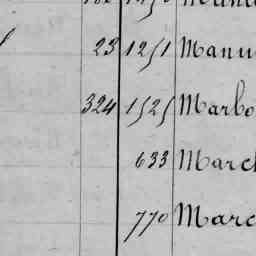 23 1251 Manu
324 1525 Marbo
633 March
770 Marc